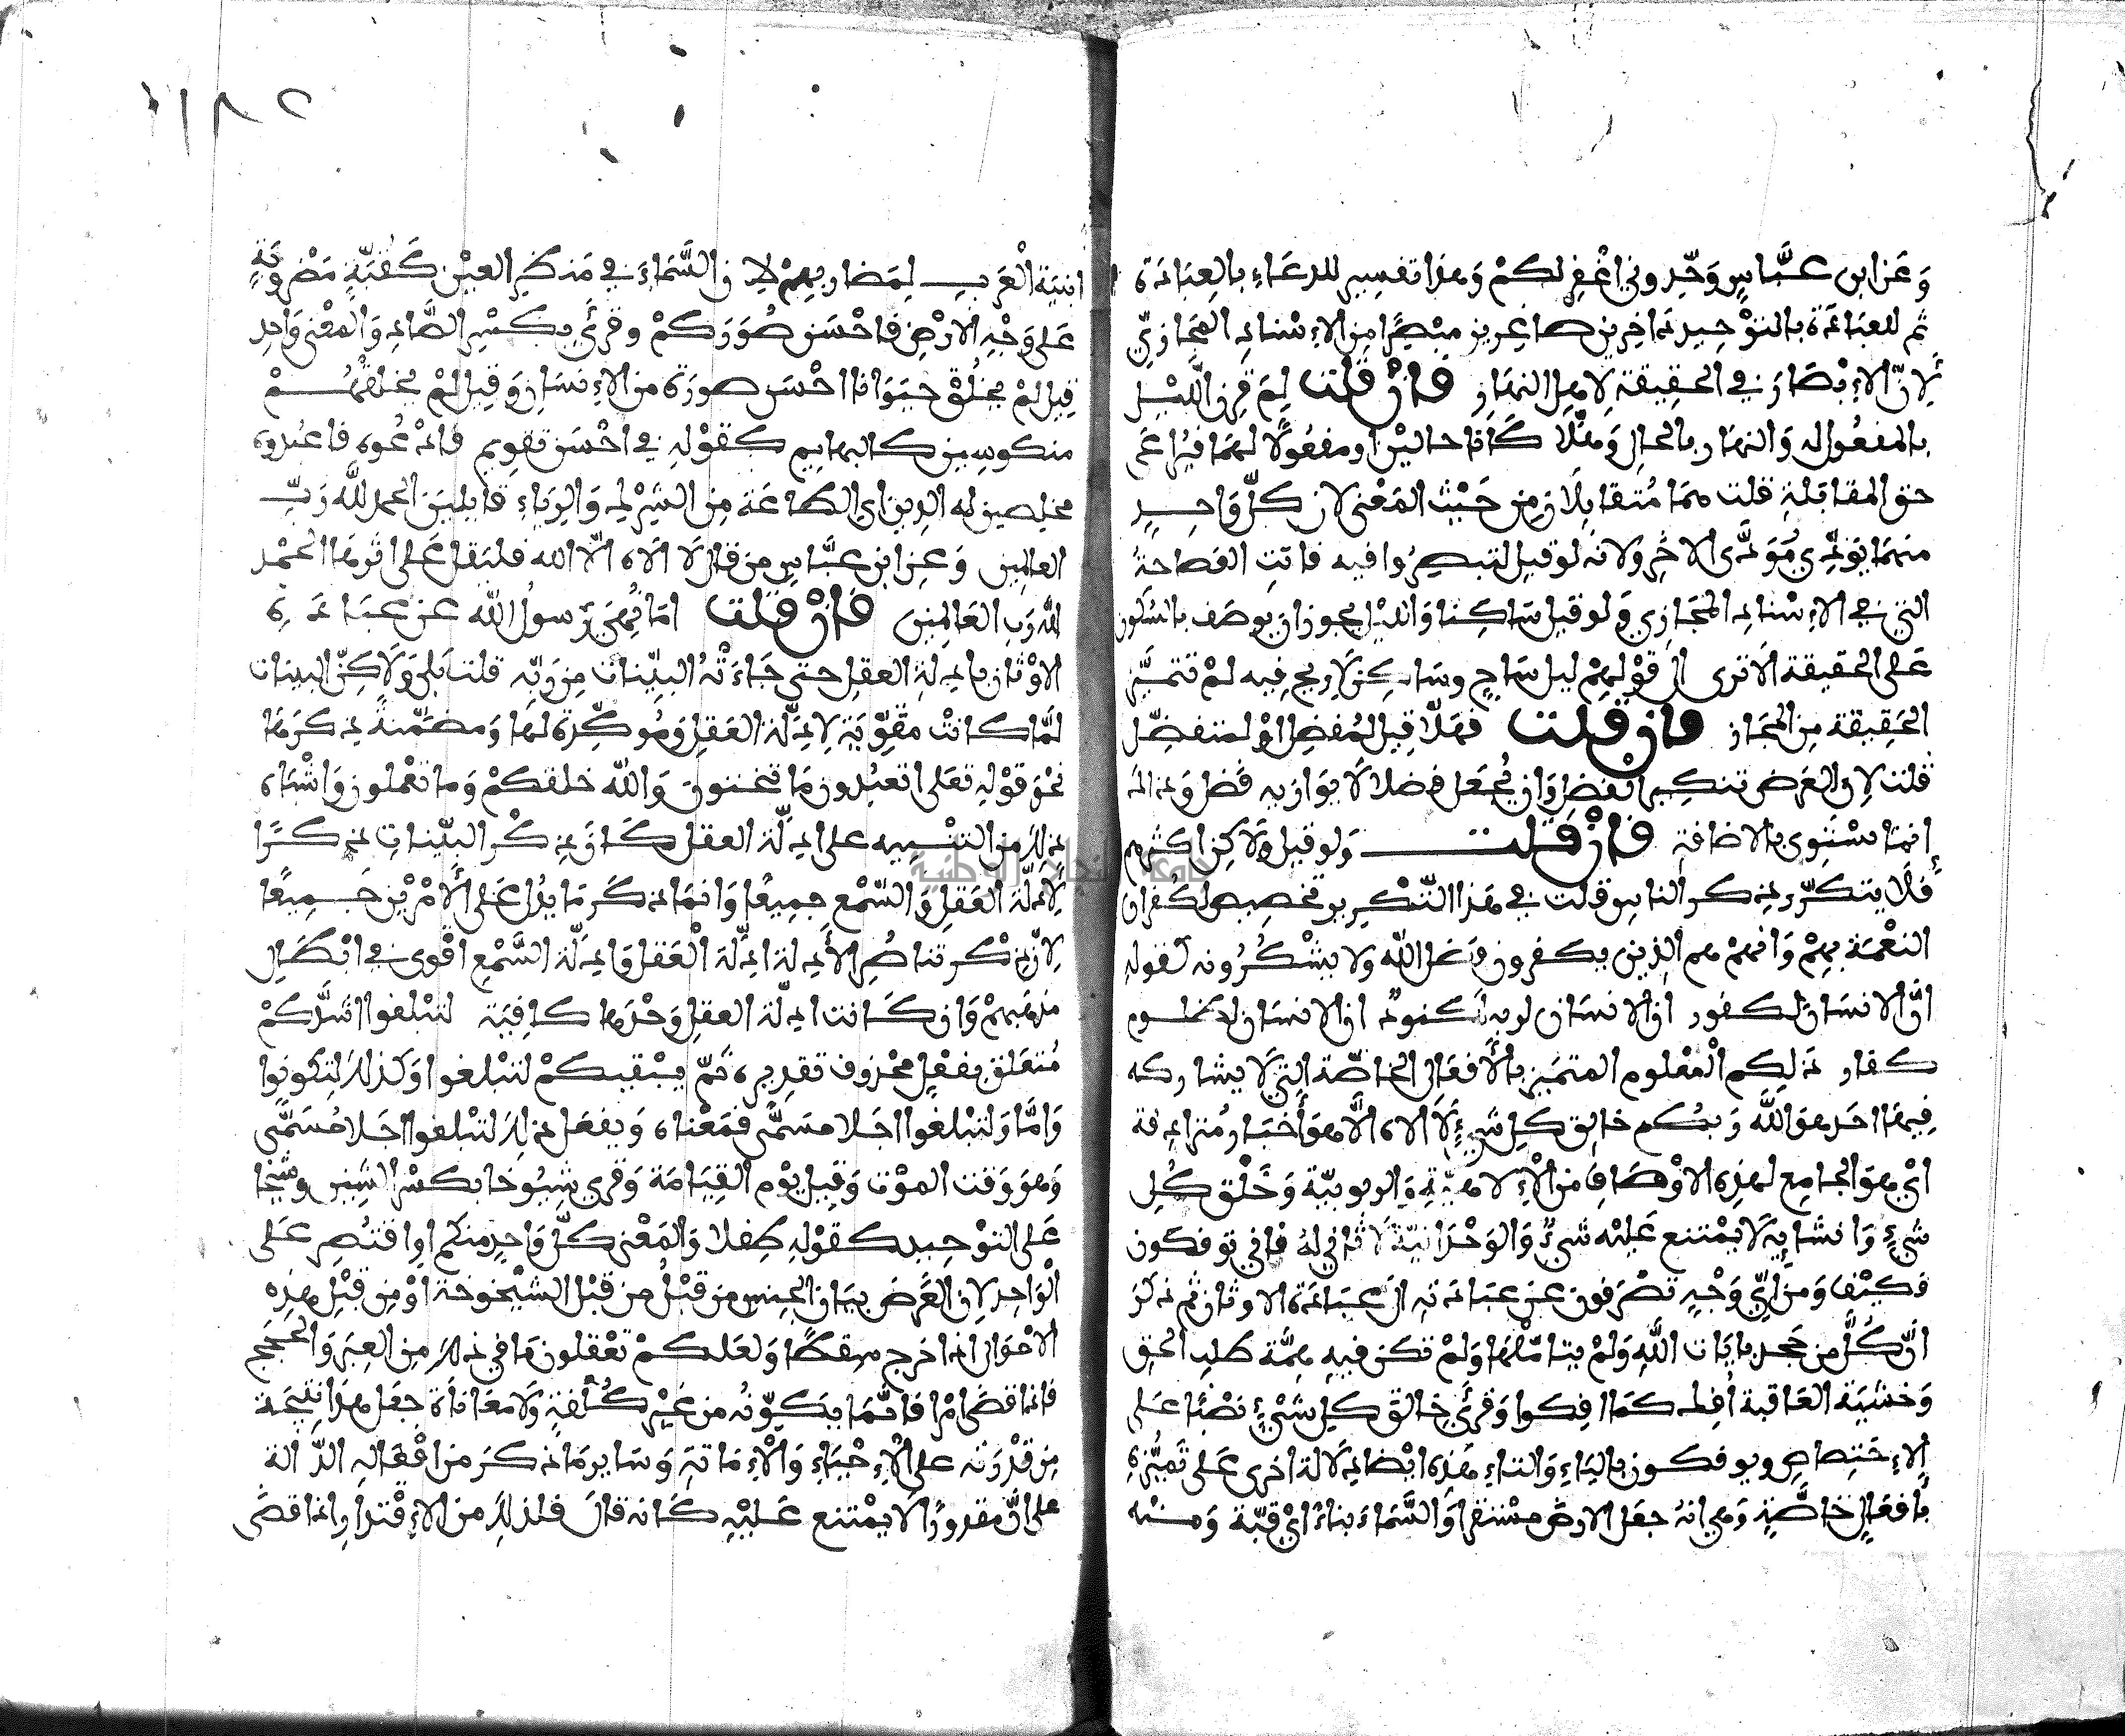 وَعَن ابن عَبَّاسٍ وَحِّدوني اغْفِر لكمْ وَهذا تفسِير للدعَاءِ بالعِبَادَة
ثم للعبَادَة بالتوْحِيد دَاخِرين صَاغِرين مبْصِرًا مِن الاِسْنادِ المجَازيِّ
لِأنّ الاِبْصَارَ في الحقِيقة لِاهل النهَارِ فَإنْ قلت لِمَ قرِن اللّيْل
بالمفعُول له وَالنهَار بالحال وَهَلّا كَانا حاليْن او مفعُولًا لهمَا فيُراعَى
حق المقابَلةِ قلت همَا مُتقابِلَان مِن حَيْث المَعْنى لان كلّ وَاحِدٍ
منهمَا يؤدِّي مُؤدَّى الاخَرِ ولانهُ لو قيل لتبصِرُوا فيه فاتتِ الفصاحَة
التي في الاِسْنادِ المجَازِي وَلو قيل سَاكِنا وَالليْل يجوز ان يوصَف بالسّكون
عَلى الحقيقة الَا ترى الى قوْلِهِمْ ليل سَاجٍ وسَاكِن لَا رِيح فِيه لمْ تتميَّزِ
الحَقِيقة مِن المجَاز فإن قلت فهَلّا قِيل لمُفضِل اوْ لمتفضِّل
قلت لِانّ الغرَض تنكِير الفضل وَان يُجعَل فضلا لَا يوَازيه فضل وَذلك
انمَا يسْتَوِي بالاضافة فَإنْ قلت وَلو قيل وَلَاكِن اكثرهم
فلَا يتكرّر ذِكر الناس قلت في هَذا التكرِير تخصِيص لكُفرَان
النعْمَة بهِمْ وَانهمْ هم الذِين يكفرون فضل الله وَلا يشْكُرُونه كقولهِ
انَّ الانسَان لكفور ان الانسَان لربه لكنودٌ ان الانسَان لظلوم
كفار ذَلِكم الْمعْلوم المتميز بالأفعَال الخاصّة التي لَا يشاركه
فِيهَا احَد هوَ اللَّه رَبُّكم خالِق كل شيْءٍ لَا الاه الَّا هوَ أخبَار مُترادِفة
ايْ هوَ الجامِع لهذِه الاوْصَافِ مَن الْاِلاهيّةِ وَالربوبيّة وَخَلْق كُلِ
شيْءٍ وَانشَايِهِ لَا يمْتنع عَليْه شيْءٌ وَالوَحْدَانيّة لَا ثانيَ لهُ فانى توفكون
فكيْف وَمن ايِّ وَجْهٍ تصْرَفون عَن عبَادَتهِ الى عبَادَة الاوثان ثم ذكر
انّ كُلّ من جَحد بايَات اللَّهِ وَلمْ يتامّلهَا وَلمْ تكن فيهِ همّة طلب الحق
وَخشيَة العَاقبة أُفِك كمَا افِكوا وَقرِئَ خالقَ كل شَيْءٍ نصْبًا عَلى
الاِختِصاصِ ويوفكون باليَاءِ وَالتاءِ هَذِه ايْضا دِلَالة اخرى عَلى تميُّزهِ
بأفعَالٍ خَاصّةٍ وَهي انهُ جعَل الارضَ مسْتقرا وَالسَّمَاءَ بناءً ايْ قبّة وَمنه
ابنيَة الْعَرَبِ لِمَضاربهِمْ لِانّ السَّمَاءَ في مَنظرِ العيْن كَقبّةٍ مَضْروبَةٍ
عَلى وَجْهِ الارْضِ فَاحْسَن صُوَرَكمْ وقرِئَ بكَسْرِ الصَّادِ وَالمعْنى وَاحِد
قِيل لمْ يخلُقْ حيَوَانا احْسَن صورَة من الاِنسَان وَقِيل لمْ يخلقهُمْ
منكوسِين كالبهايم كقوْلهِ في احْسَن تقوِيمٍ فادْعُوه فاعبُدوه
مخلِصين له الدِين اي الطاعَة مِن الشِرْك وَالرِيَاءِ قايلِينَ الحمد للّه رَبِّ
العالمين وَعن ابن عَبَّاسٍ من قالَ لَا الَاه الّا الله فليَقل عَلى اثرهَا الحمْد
لله رَبِ العَالمين فَانْ قلت امَا نُهيَ رَسولُ اللّه عَن عبَادَةِ
الاوْثان بادِلةِ العقل حتى جَاءَتْهُ البيِّنات مِن رَبِّهِ قلت بَلى وَلَاكِنّ البيِّنات
لمَّا كانتْ مقوِّيَة لِادِلّة العَقل وَمُوكِّدة لها وَمضمّنة ذِكرَهَا
نحْوَ قوْلهِ تعَلى اتعبُدون مَا تنحتونَ وَاللّه خلقكمْ وَما تعْملون وَاشْبَاه
ذلك مِن التنْبيه على ادِلّة العقل كَان ذِكْر البيّناتِ ذِكرًا
لِادلّة العَقلِ وَالسّمْع جميعًا وَانمَا ذكَر مَا يدُل عَلى الْامْرَيْن جَميعًا
لِانّ ذِكْر تناصُرِ الأدِلة ادِّلة الْعَقل وَادِلّة السَّمْع اقْوى في ابْطالِ
مذهَبهِمْ وَان كَانت ادِلّة العقل وَحْدَها كافيَة لتبْلغوا اشُدَّكمْ
مُتعَلق بفعْلٍ محْذوف تقدِيره ثمّ يبْقيكمْ لتبْلغوا وَكذلك لِتكونوا
وَامَّا وَلتبْلغوا اجَلا مسَمًّى فمَعْناه وَيفعَل ذلك لتبْلغوا اجَلا مُسَمًّى
وَهوَ وَقت الموْت وَقِيل يوْم القِيَامَة وَقرِي شيُوخا بكسْر الشِين وشيْخا
عَلى التوْحِيد كقوْلهِ طِفلا وَالمَعْنى كلّ وَاحِدٍ منكم اوِ اقتُصِر عَلى
الْوَاحِد لِانّ الغَرَضَ بيَان الجِنس من قبْلُ مِن قبْل الشيْخوخة اوْ مِن قبْل هذِه
الاحْوَال اذا خرج سِقطًا وَلعَلكمْ تعْقلون مَا في ذلك مِن العِبَر وَالحجَج
فاذا قضَى امْرا فَانَّمَا يُكوِّنهُ من غيْر كُلْفةٍ وَلَا معَاناة جعَل هذا نتِيجة
مِن قدْرَته على الْاِحْيَاءِ وَالْاِمَاتَةِ وَسَايرِ مَا ذكَر مَن افعَالهِ الدّالة
على أنّ مقدورًا لَا يمْتنع عَليْهِ كَانه قالَ فلذلك مَن الاِقتدارِ اذا قضَى